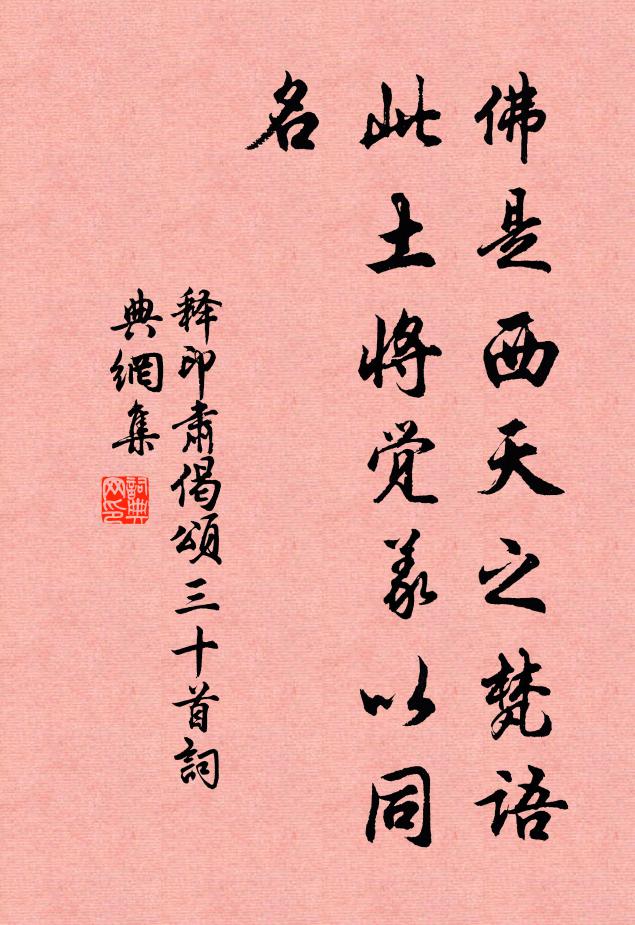 佛是西天之梵语
此土将觉义以同
名
释印肃偈颂三十首词
典網集
詞典網印